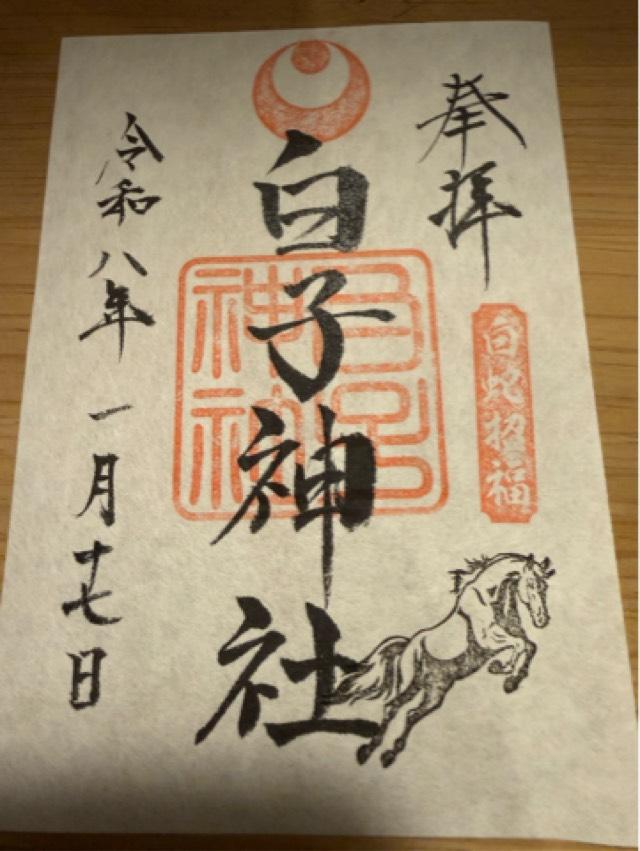 奉拝
白蛇招福
白子神社
令和八年一月十七日